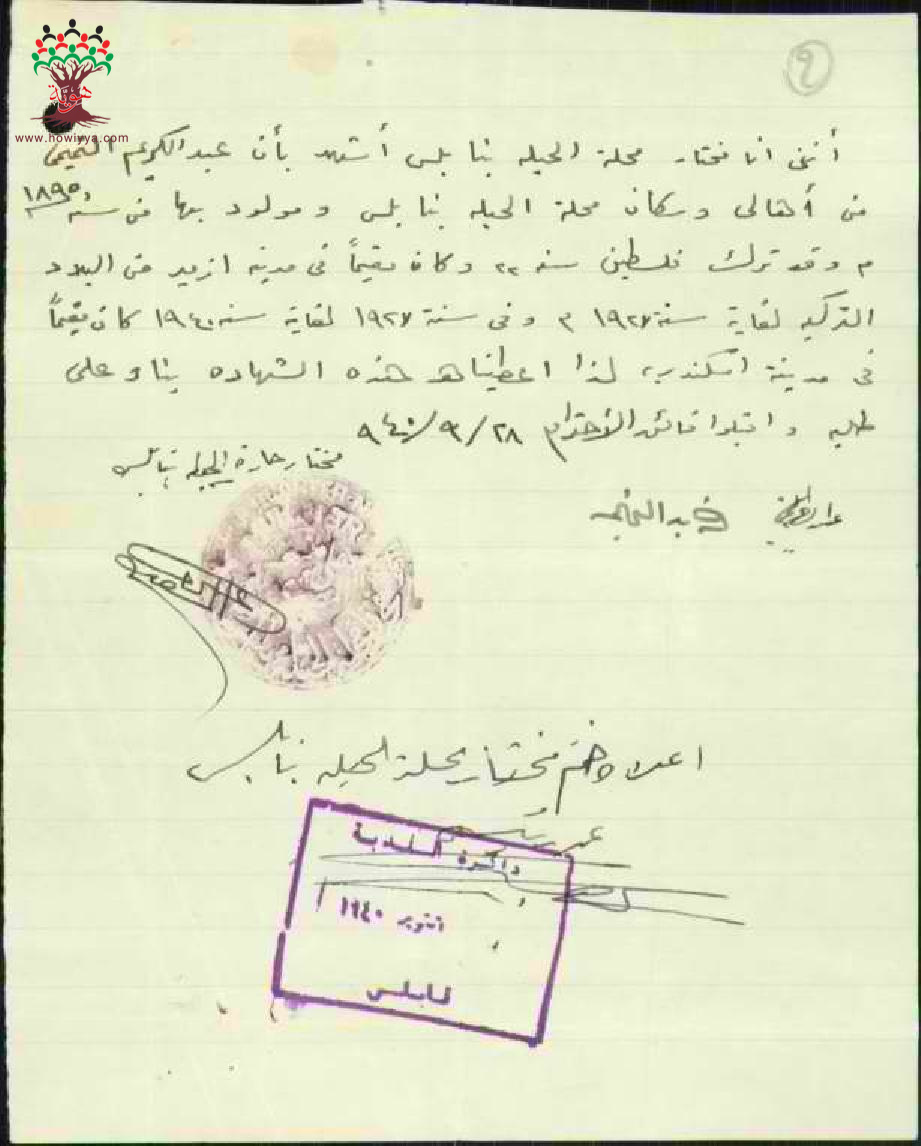 ٩
هوية
www.howiyya.com
أنني انا مختار محلة الحبله بنابلس أشهد بأن عبد الكريم التميمي
من أهالي وسكان محلة الحبله بنابلس ومولود بها من سنة ١٨٩٥
م وقد ترك فلسطين سنه ٢٢ وكان مقيماً في مدينة ازمير من البلاد
التركيه لغاية سنة ١٩٢٧ م وفي سنة ١٩٢٧ لغاية سنه ١٩٤٠ كان مقيماً
في مدينة اسكندرية لذا اعطيناه هذه الشهاده بناء على
طلبه واقبلوا فائق الاحترام ٢٨/٩/٩٤٠
مختار حارة الحبله بنابلس
اعلاه ختم مختار محلة الحبله بنابلس
دائرة البلدية
اكتوبر ١٩٤٠
نابلس